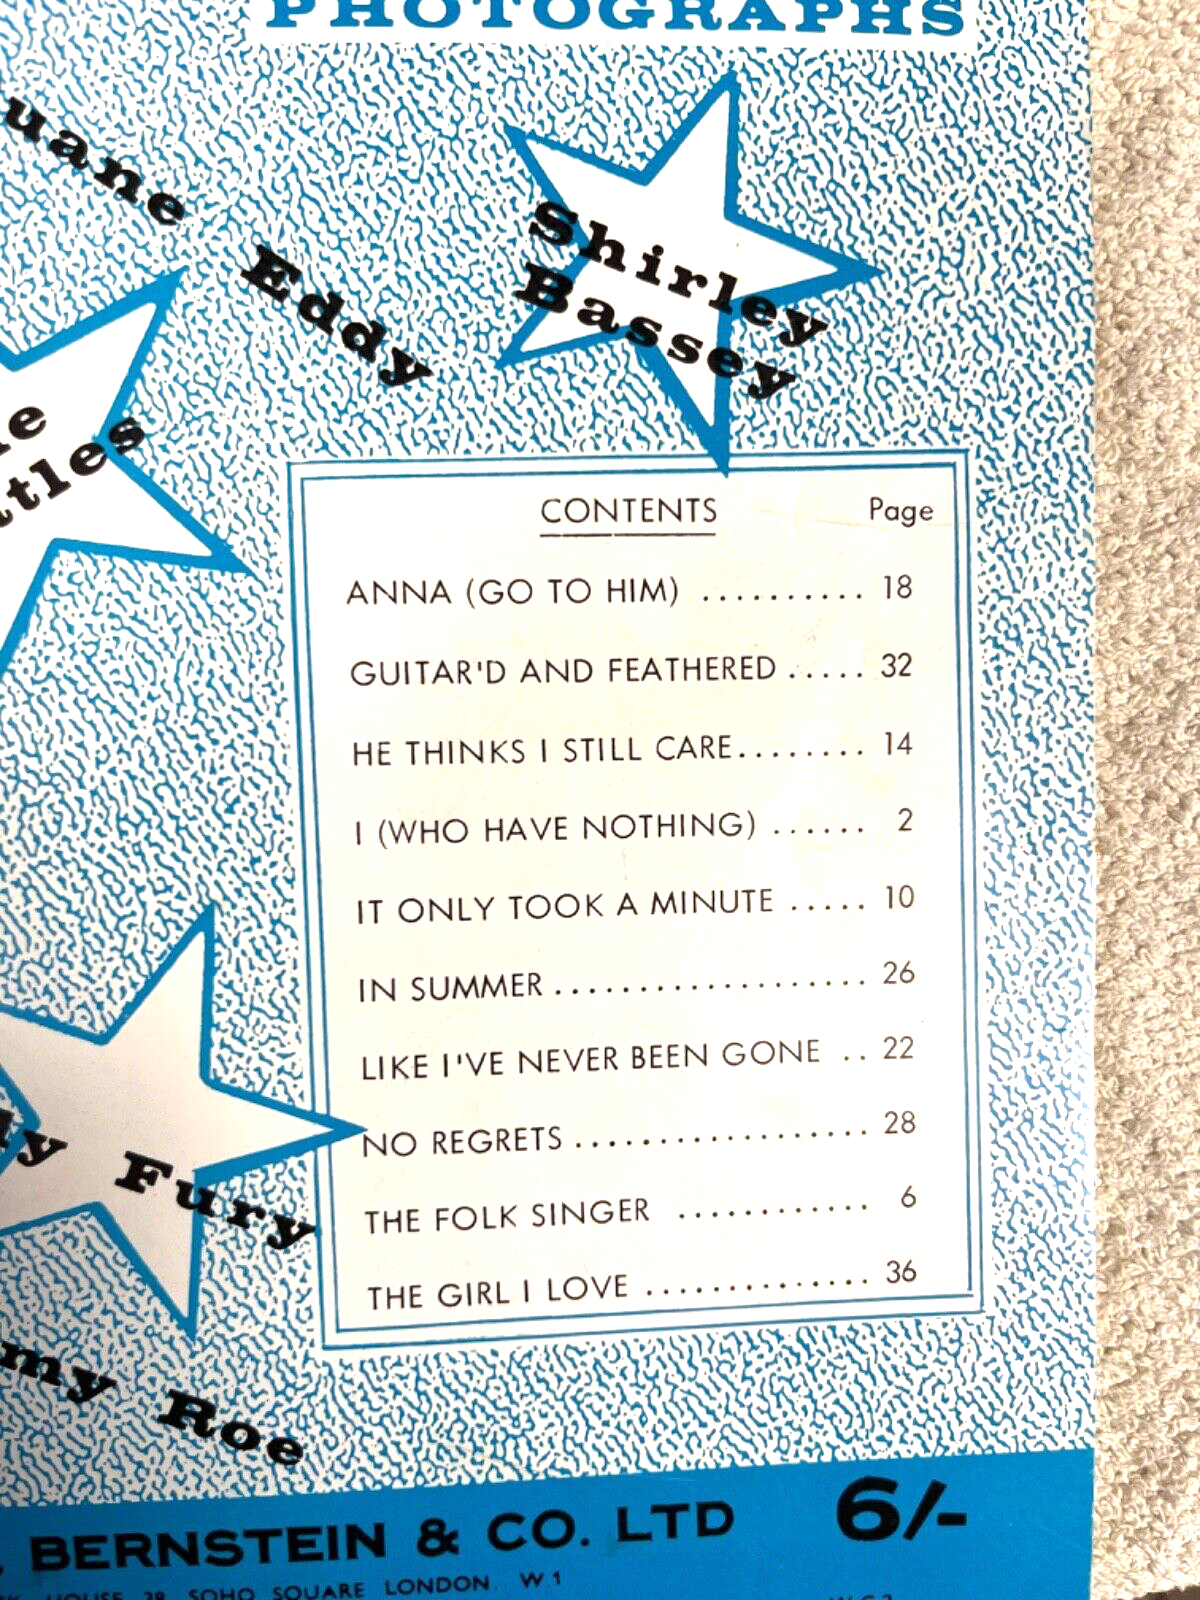 PHOTOGRAPHS
uane Eddy
Shirley
Bassey
e
ttles
CONTENTS Page
ANNA (GO TO HIM) .......... 18
GUITAR'D AND FEATHERED ..... 32
HE THINKS I STILL CARE........ 14
I (WHO HAVE NOTHING) ...... 2
IT ONLY TOOK A MINUTE ..... 10
IN SUMMER .................... 26
LIKE I'VE NEVER BEEN GONE .. 22
NO REGRETS .................. 28
THE FOLK SINGER ............ 6
THE GIRL I LOVE .............. 36
y Fury
my Roe
. BERNSTEIN & CO. LTD 6/-
HOUSE 38 SOHO SQUARE LONDON. W.1